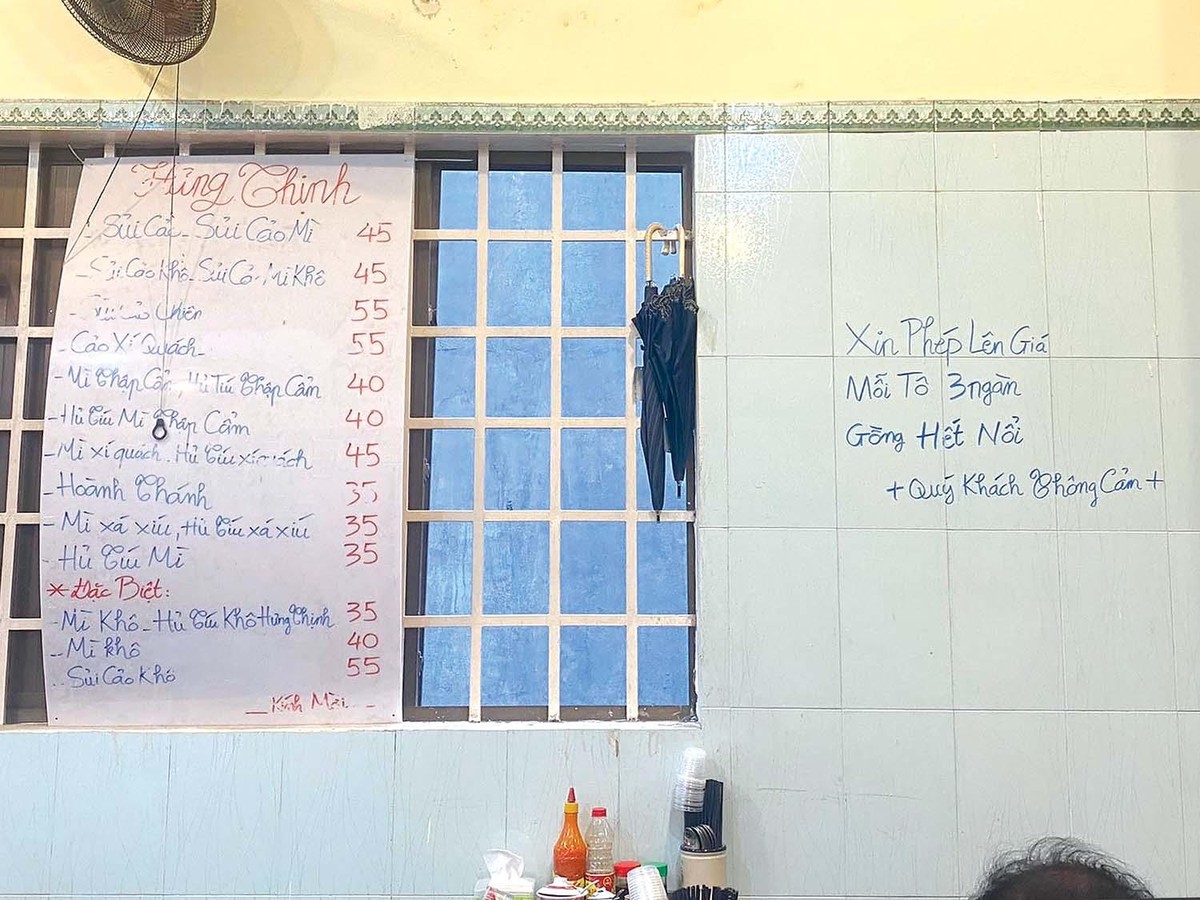 Hưng Thịnh
- Sủi Cảo - Sủi Cảo Mì 45
- Sủi Cảo Khô - Sủi Cảo Mì Khô 45
- Sủi Cảo Chiên 55
- Cảo Xí Quách - 55
- Mì Thập Cẩm, Hủ Tíu Thập Cẩm 40
- Hủ Tíu Mì Thập Cẩm 40
- Mì xí quách. Hủ Tíu xí quách 45
- Hoành Thánh 35
- Mì xá xíu, Hủ Tíu xá xíu 35
- Hủ Tíu Mì 35
* Đặc Biệt:
- Mì Khô - Hủ Tíu Khô Hưng Thịnh 35
- Mì khô 40
- Sủi Cảo Khô 55
Kính Mời
Xin Phép Lên Giá
Mỗi Tô 3 ngàn
Gồng Hết Nổi
+ Quý Khách Thông Cảm +